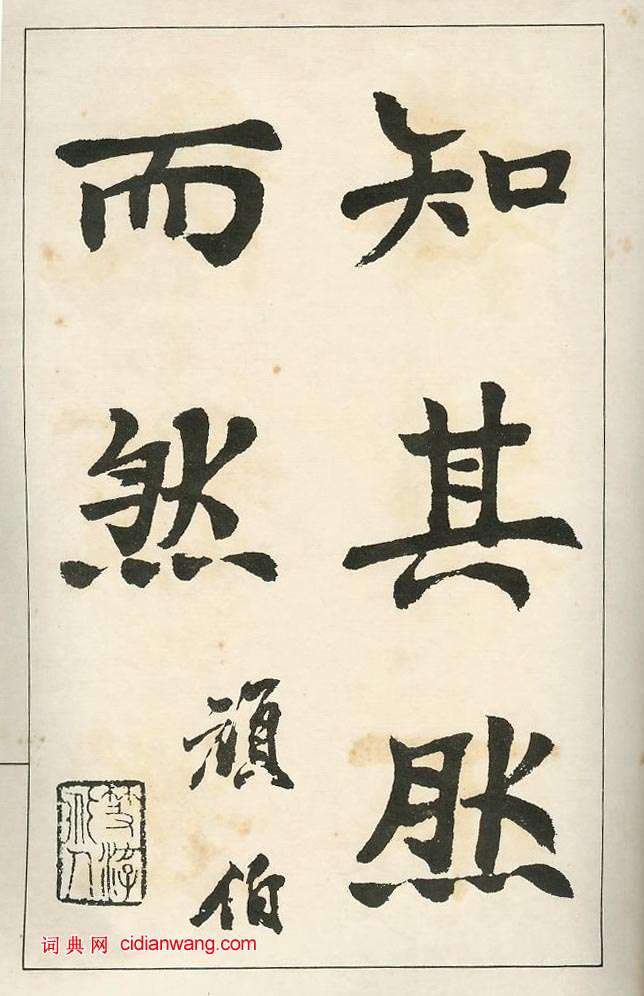 知其然
而然
頑伯
词典网 cidianwang.com